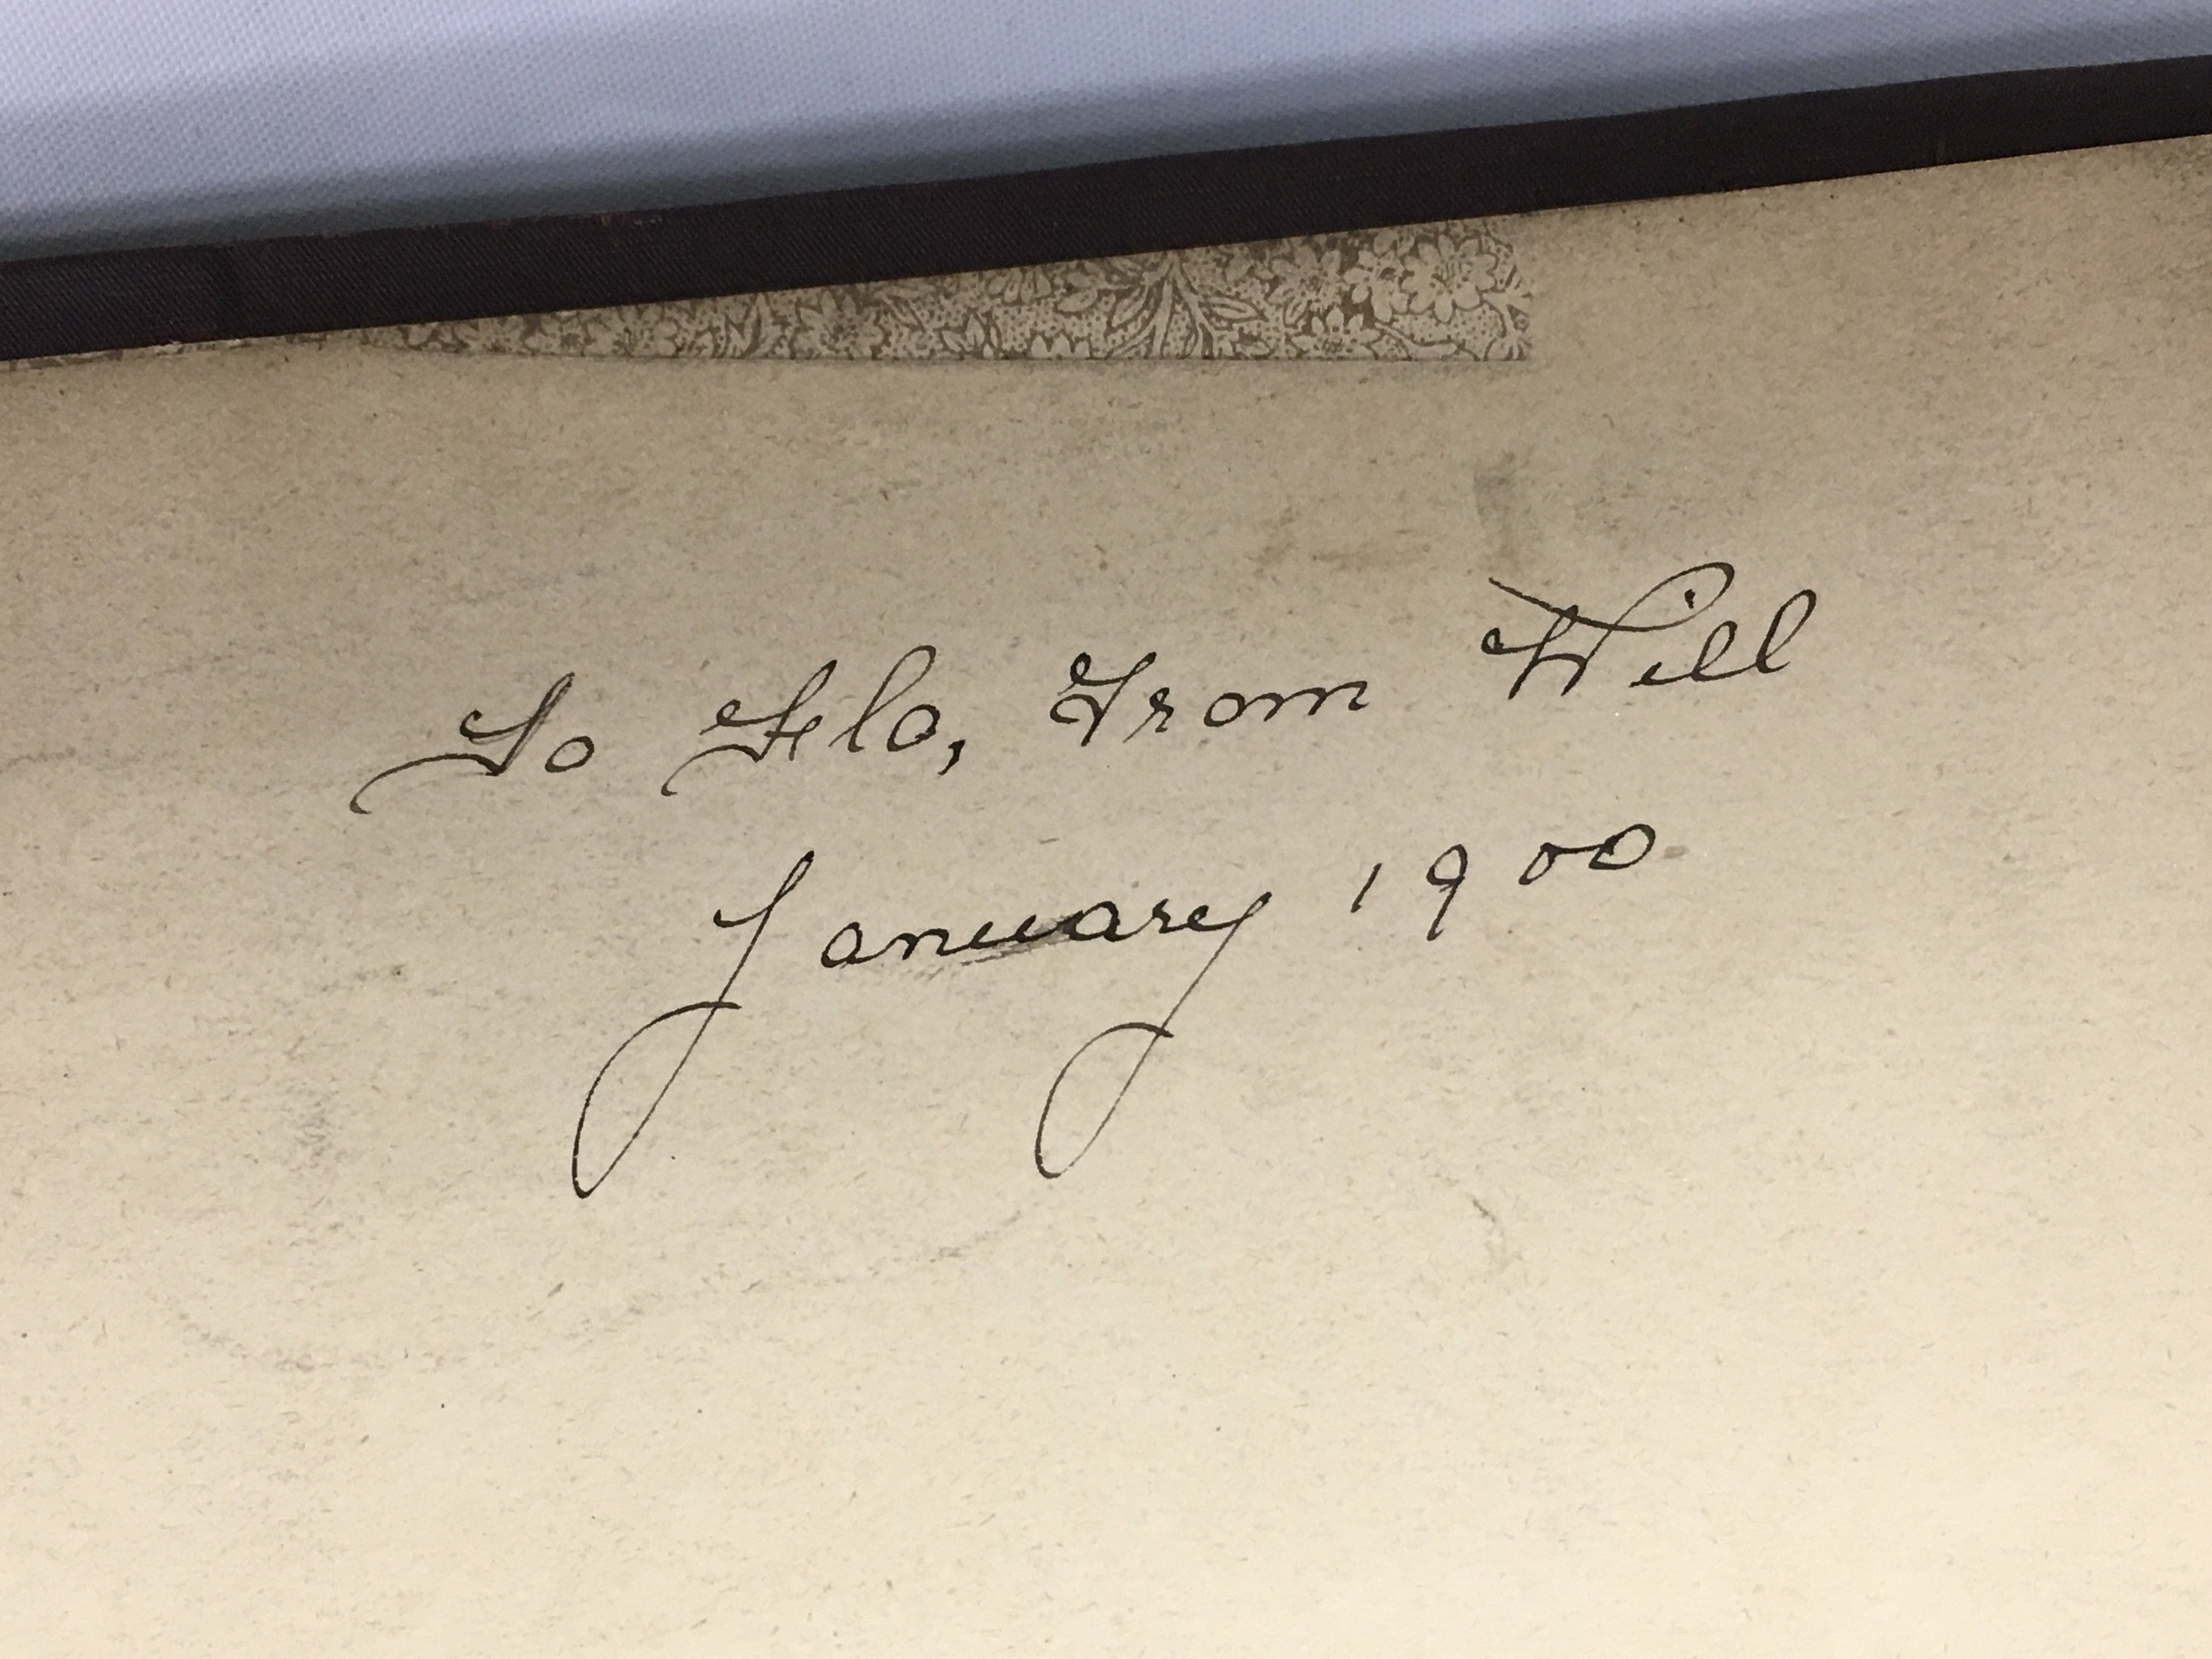 To Flo, From Will
January 1900